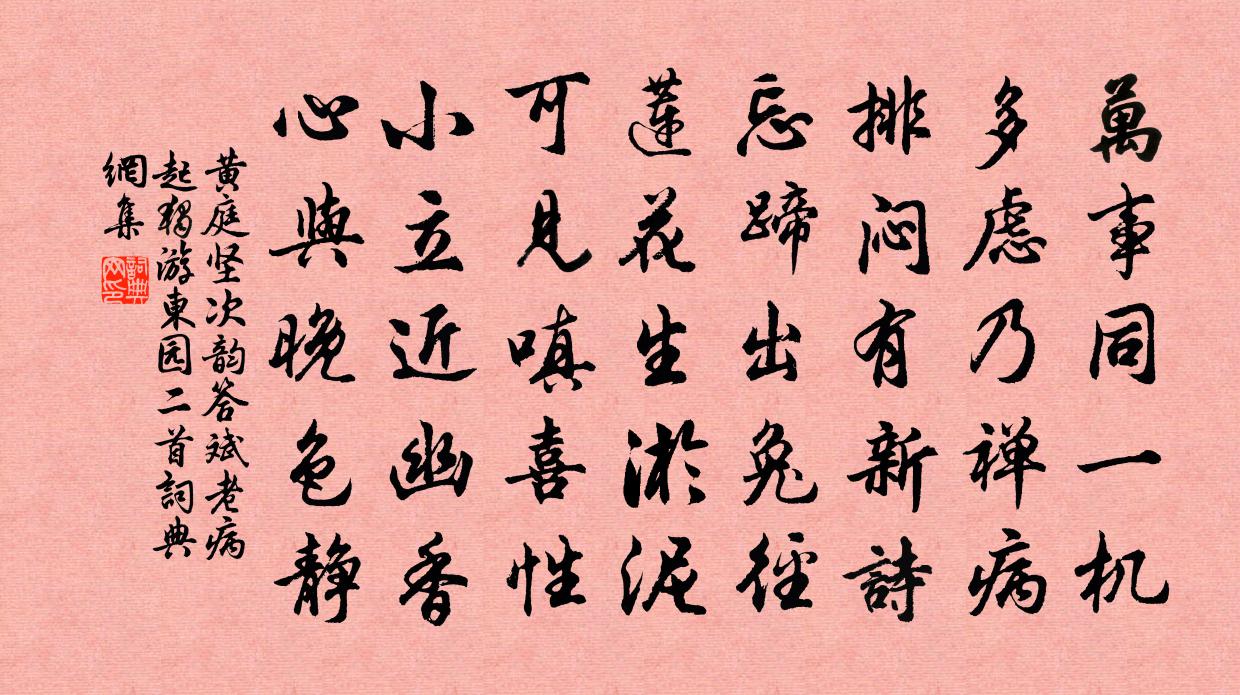 萬事同一机
多慮乃禅病
排闷有新詩
忘蹄出兔徑
蓮花生淤泥
可見嗔喜性
小立近幽香
心與晚色静
黄庭坚次韵答斌老病
起獨游東园二首詞典
網集
詞典网印